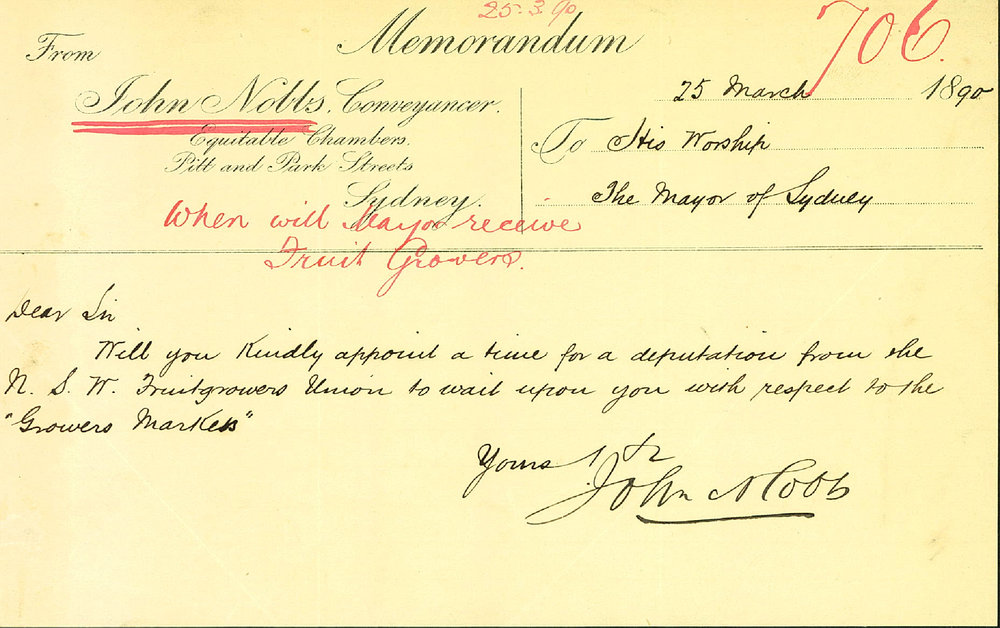 25.3.90
706.
Memorandum
From
John Nobbs. Conveyancer.
Equitable Chambers.
Pitt and Park Streets
Sydney.
25 March 1890
To His Worship
The Mayor of Sydney
When will Mayor receive
Fruit Growers.
Dear Sir
Will you Kindly appoint a time for a deputation from the
N. S. W. Fruitgrowers Union to wait upon you with respect to the
"Growers Markets"
Yours
John Nobbs